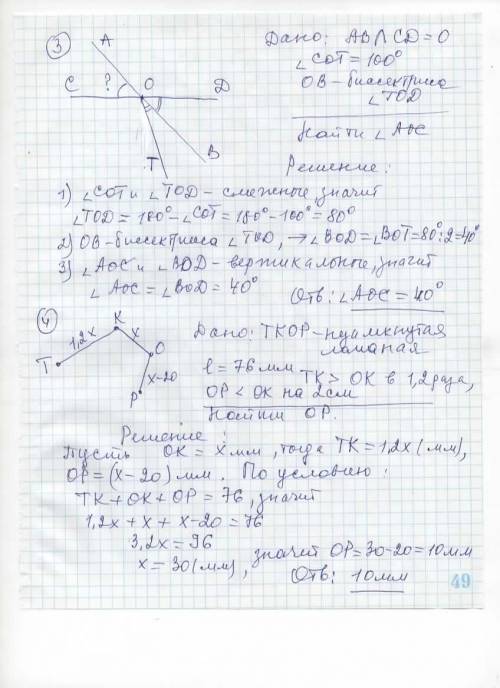 3
A
C ? O D
T B
Дано: AB∩CD=O
∠COT=100°
OB-биссектриса
∠TOD
Найти ∠AOC
Решение:
1) ∠COT и ∠TOD-смежные, значит
∠TOD=180°-∠COT=180°-100°=80°
2) OB-биссектриса ∠TOD, → ∠BOD=∠BOT=80°:2=40°
3) ∠AOC и ∠BOD-вертикальные, значит
∠AOC=∠BOD=40°
Отв: ∠AOC=40°
4
K
1,2x x
T O
x-20
P
Дано: TKOP-
ломаная
l=76мм TK> OK в 1,2 раза,
OP < OK на 2см
Найти OP.
Решение
Пусть OK=x мм, тогда TK=1,2x(мм),
OP=(x-20) мм. По условию:
TK+OK+OP=76, значит
1,2x+x+x-20=76
3,2x=96
x=30(мм), значит OP=30-20=10мм
Отв: 10мм
49